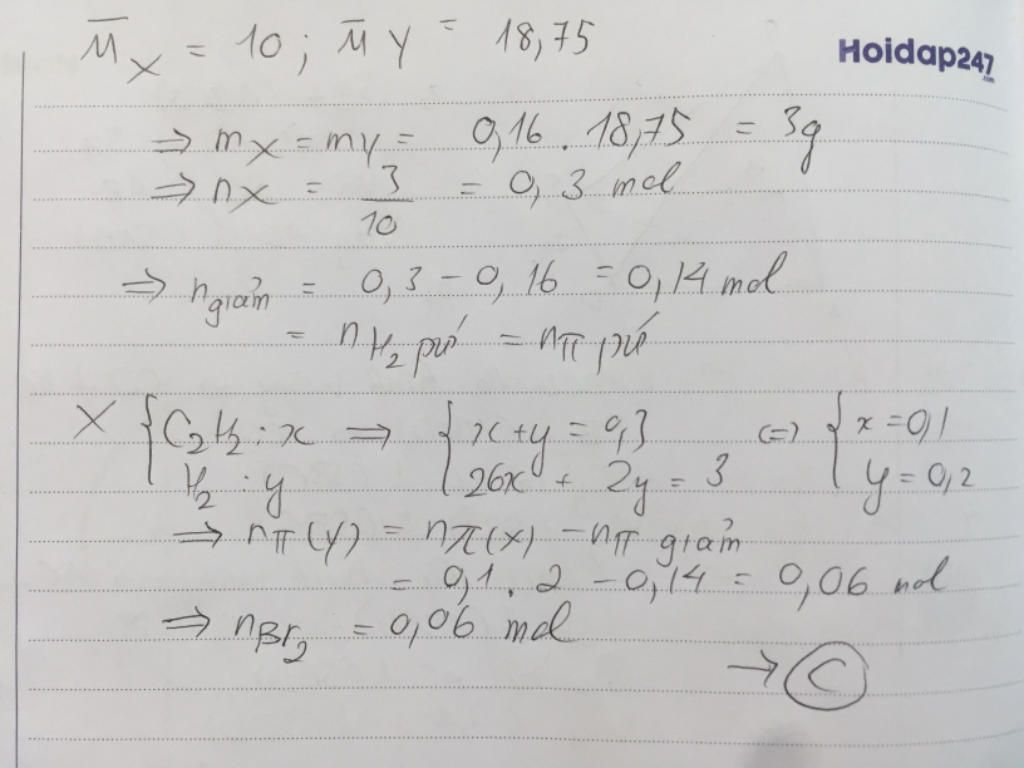 M̄ X = 10 ; M̄ Y = 18,75
Hoidap247
.com
⇒ mX = mY = 0,16 . 18,75 = 3g
⇒ nX = 3/10 = 0,3 mol
⇒ n giảm = 0,3 - 0,16 = 0,14 mol
= n H2 pứ = nπ pứ
X { C2H2 : x ⇒ { x + y = 0,3 <=> { x = 0,1
H2 : y 26x + 2y = 3 y = 0,2
⇒ nπ(Y) = nπ(X) - nπ giảm
= 0,1 . 2 - 0,14 = 0,06 mol
⇒ nBr2 = 0,06 mol
→ C